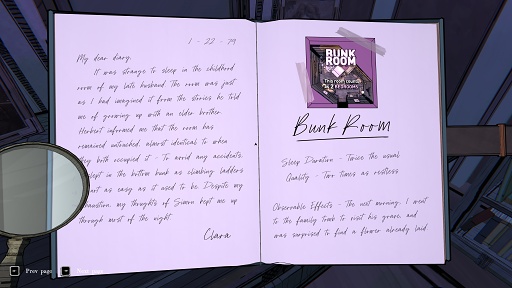 1 - 22 - 79
My dear diary,
It was strange to sleep in the childhood
room of my late husband. The room was just
as I had imagined it from the stories he told
me of growing up with an elder brother.
Herbert informed me that the room has
remained untouched, almost identical to when
they both occupied it - To avoid any accidents,
slept in the bottom bunk as climbing ladders
isn't as easy as it used to be. Despite my
exhaustion, my thoughts of Simon kept me up
through most of the night.
Clara
BUNK
ROOM
This room counts
as 2 BEDROOMS
Bunk Room
Sleep Duration - Twice the usual
Quality - Two times as restless
Observable Effects - The next morning, I went
to the family tomb to visit his grave, and
was surprised to find a flower already laid
Prev page
Next page